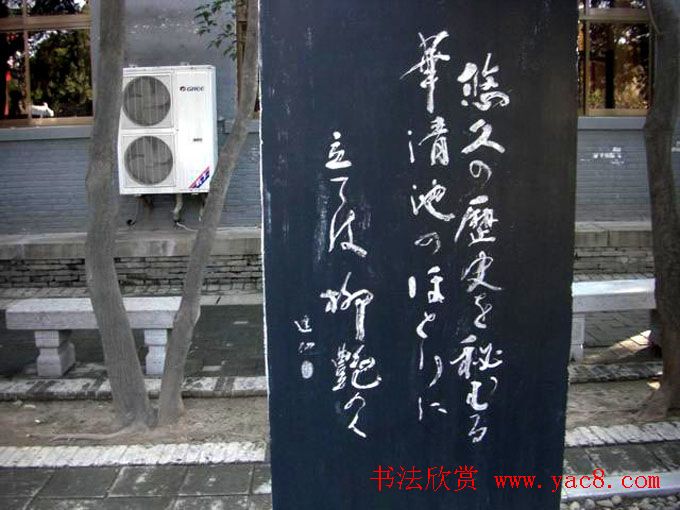 悠久の歴史を秘むる
華清池のほとりに
立てば柳艶めく
GREE
书法欣赏 www.yac8.com